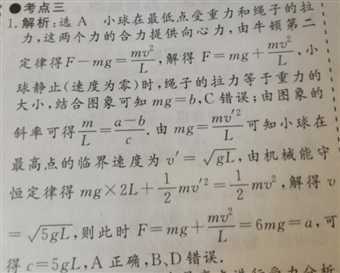 ●考点三
1. 解析:选 A 小球在最低点受重力和绳子的拉
力,这两个力的合力提供向心力,由牛顿第二
定律得 F-mg=mv²/L,解得 F=mg+mv²/L,小
球静止(速度为零)时,绳子的拉力等于重力的
大小,结合图象可知 mg=b,C 错误;由图象的
斜率可得 m/L=(a-b)/c.由 mg=mv'²/L 可知小球在
最高点的临界速度为 v'=√gL,由机械能守
恒定律得 mg×2L+1/2 mv'²=1/2 mv²,解得 v
=√5gL,则此时 F=mg+mv²/L=6mg=a,可
得 c=5gL,A 正确,B、D 错误.